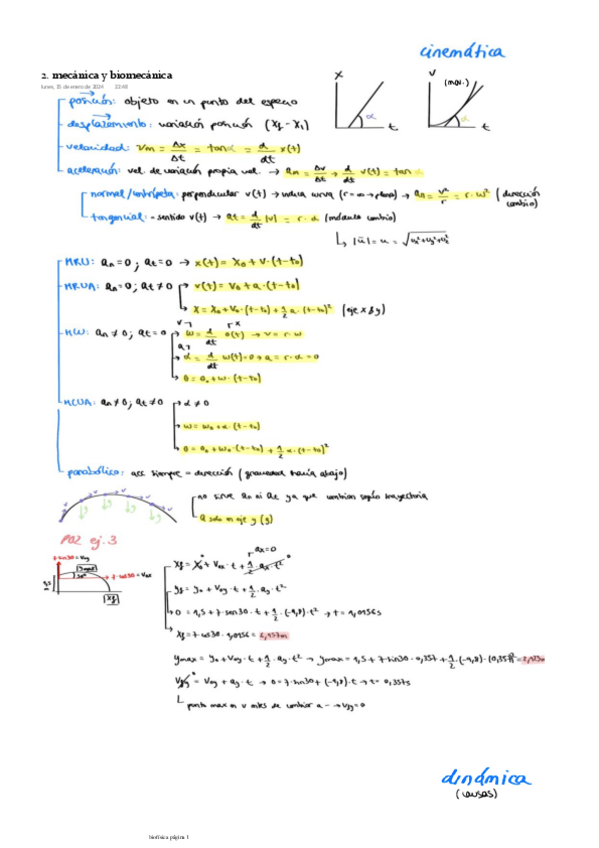 cinemática
2. mecánica y biomecánica
lunes, 15 de enero de 2024 22:48
x
α
t
v
(mov.)
α
t
posición: objeto en un punto del espacio
desplazamiento: variación posición (xf - xi)
velocidad: Vm = Δx/Δt = tanα = d/dt x(t)
aceleración: vel. de variación propia vel. → am = Δv/Δt → d/dt v(t) = tan α
normal/centrípeta: perpendicular v(t) → indica curva (r=∞→plano) → an = v²/r = r·ω² (dirección cambio)
tangencial: = sentido v(t) → at = d/dt |v| = r·α (módulo cambio)
↳ |ū| = u = √ux²+uy²+uz²
MRU: an=0; at=0 → x(t) = x0 + v·(t-t0)
MRUA: an=0; at≠0 → v(t) = v0 + a·(t-t0)
x = x0 + v0·(t-t0) + 1/2 a·(t-t0)² (eje x & y)
MCU: an≠0; at=0 → ω = d/dt θ(t) → v = r·ω
α = d/dt ω(t) = 0 → a = r·α = 0
θ = θ0 + ω·(t-t0)
MCUA: an≠0; at≠0 → α≠0
ω = ω0 + α·(t-t0)
θ = θ0 + ω0·(t-t0) + 1/2 α·(t-t0)²
parabólico: acc siempre = dirección (gravedad hacia abajo)
no sirve an ni at ya que cambian según trayectoria
a solo en eje y (g)
PO2 ej. 3
7·sin30 = Voy
7·cos30 = Vox
30°
1,5
xf
ax=0
xf = x0 + Vox·t + 1/2·ax·t²
yf = y0 + Voy·t + 1/2·ay·t²
0 = 1,5 + 7·sen30·t + 1/2·(-9,8)·t² → t = 1,0156s
xf = 7·cos30·1,0156 = 6,157m
ymax = y0 + Voy·t + 1/2·ay·t² → ymax = 1,5 + 7·sin30·0,357 + 1/2·(-9,8)·(0,357)² =
Vfy = Voy + ay·t → 0 = 7·sin30 + (-9,8)·t → t = 0,357s
punto max en v antes de cambiar a - → Vfy=0
dinámica
(causas)
biofísica página 1